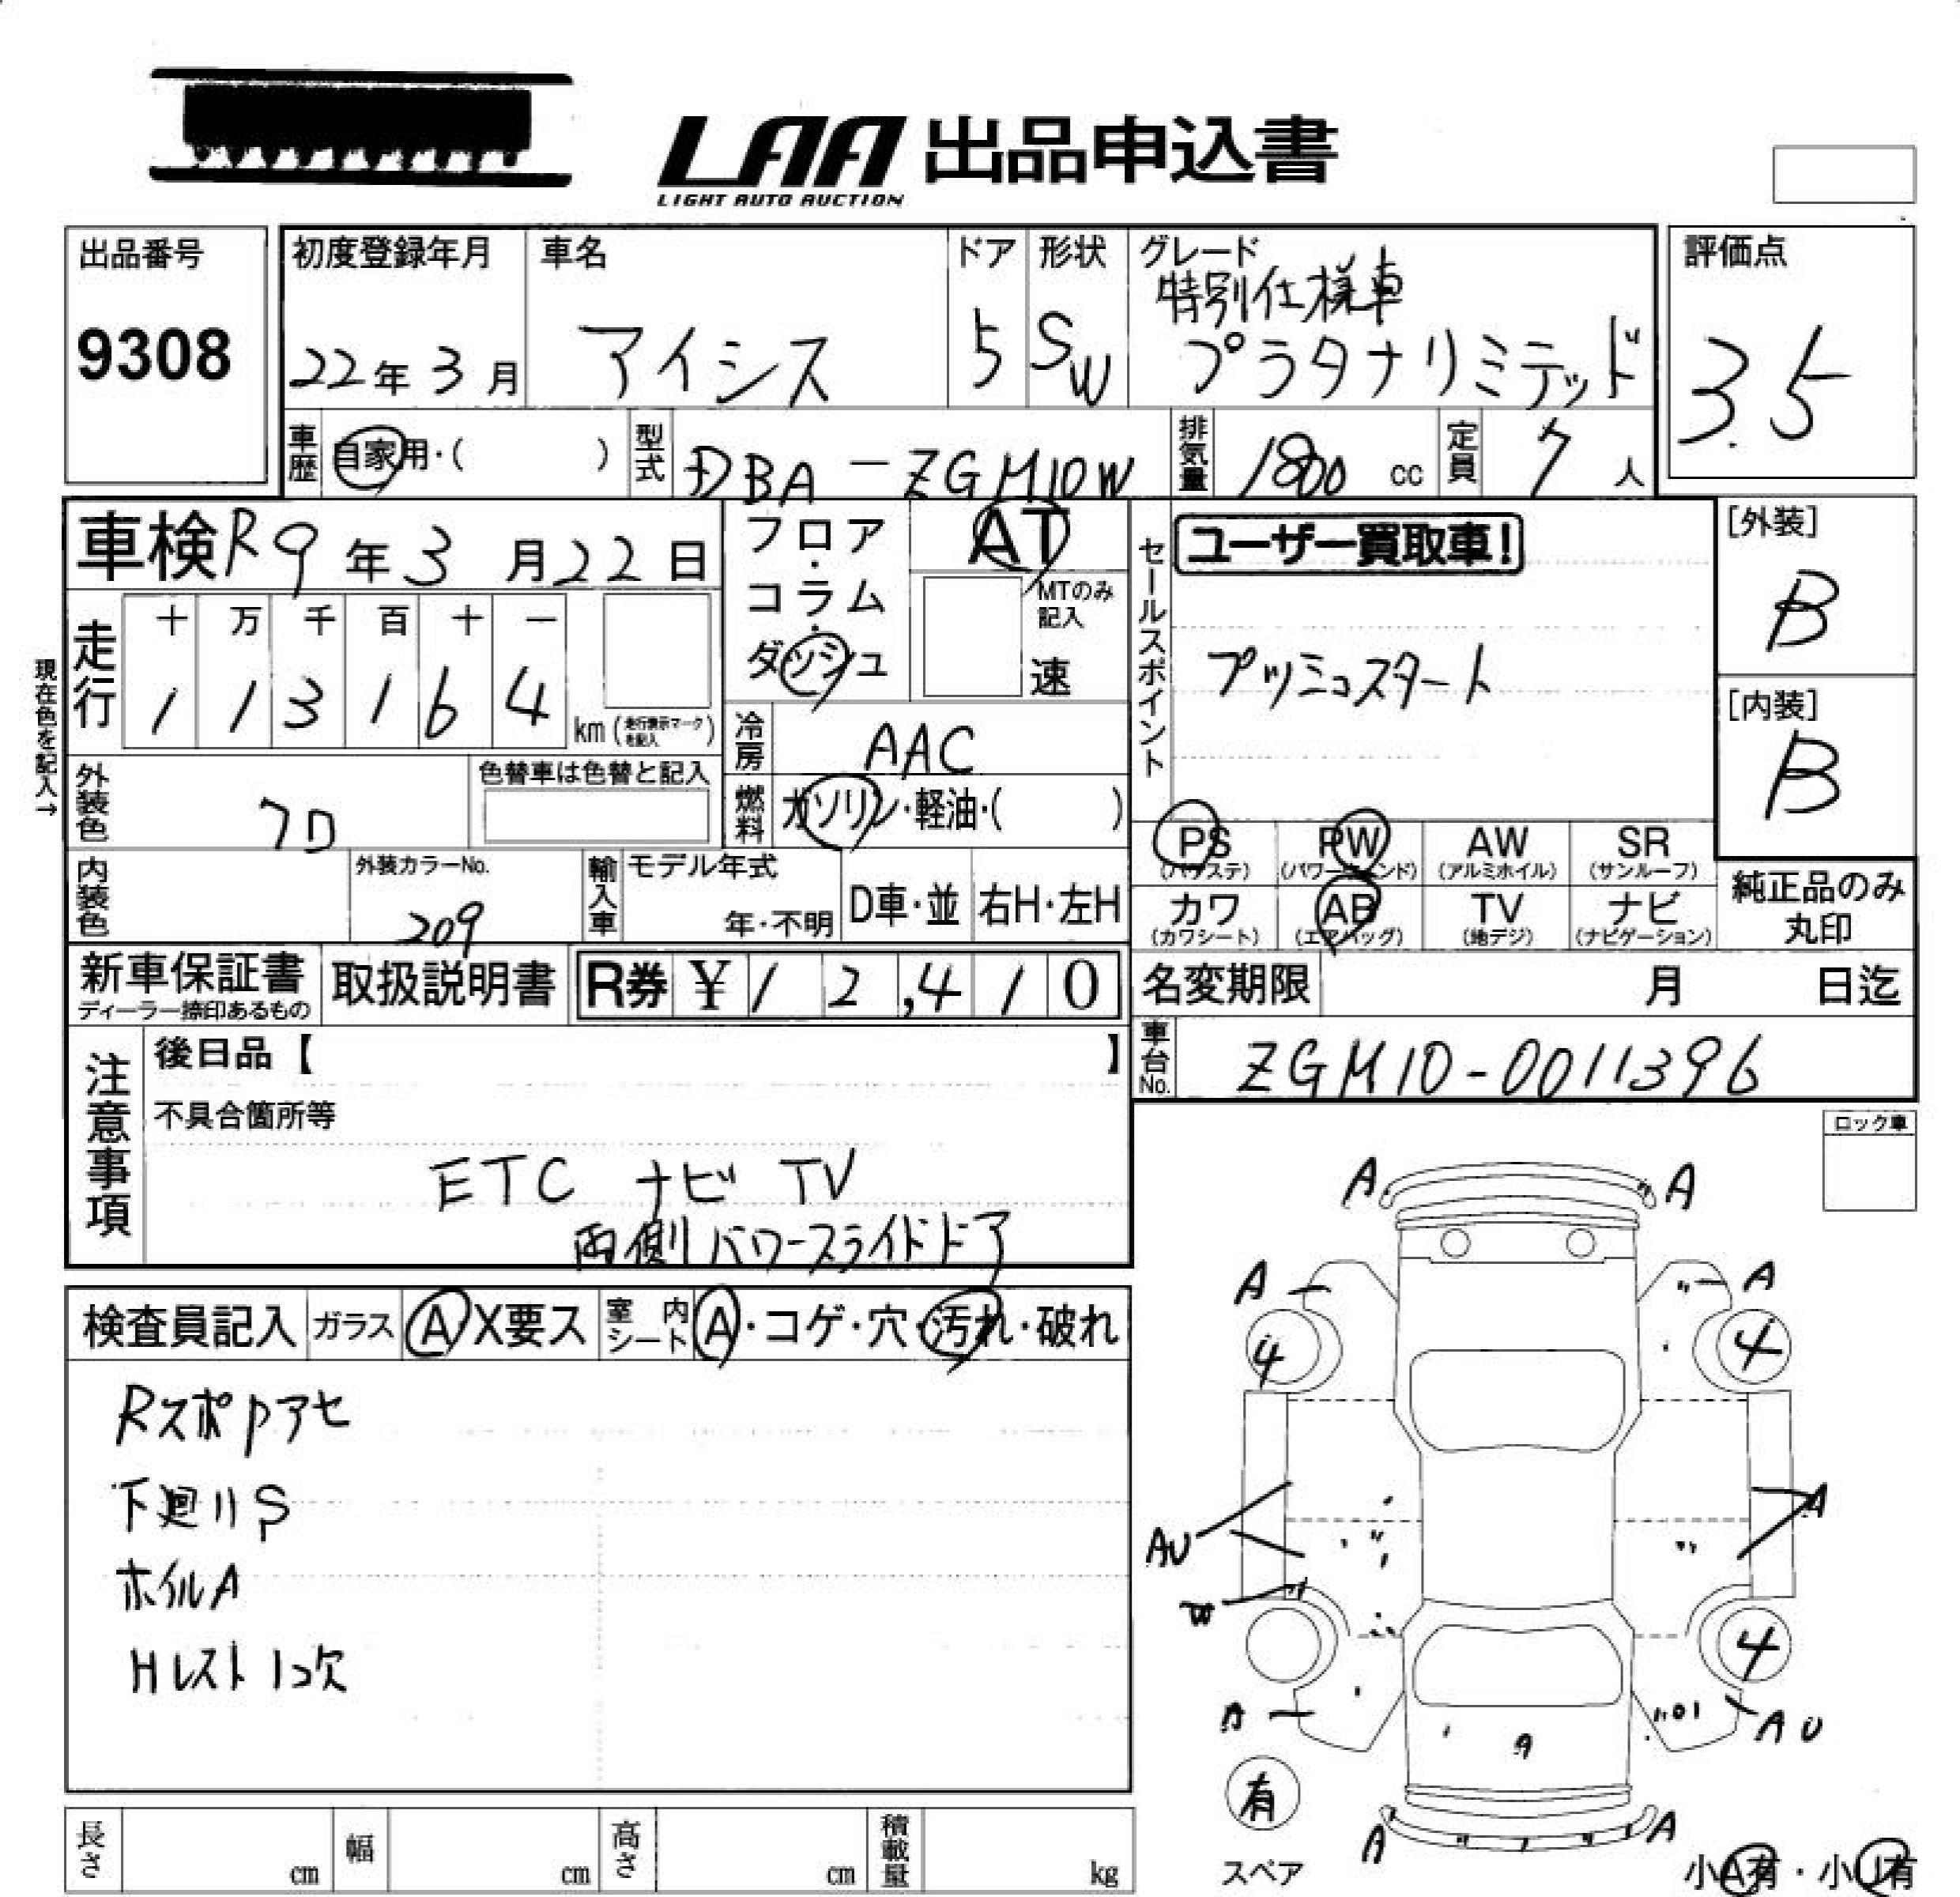 LAA 出品申込書
LIGHT AUTO AUCTION
出品番号
9308
初度登録年月
22年 3月
車名
アイシス
ドア
5
形状
SW
グレード
特別仕様車
プラタナリミテッド
評価点
3.5
車歴
自家用・( )
型式
DBA-ZGM10W
排気量
1800 cc
定員
7人
車検 R9年 3月22日
フロア・コラム・ダッシュ
AT
MTのみ記入
速
セールスポイント
ユーザー買取車!
プッシュスタート
[外装]
B
[内装]
B
現在色を記入→
走行
十 万 千 百 十 一
1 1 3 1 6 4 km (走行表示マークを記入)
冷房
AAC
燃料
ガソリン・軽油・( )
外装色
クロ
色替車は色替と記入
内装色
外装カラーNo.
209
輸入車
モデル年式
年・不明
D車・並
右H・左H
PS (パワステ)
PW (パワーウインド)
AW (アルミホイル)
SR (サンルーフ)
カワ (カワシート)
AB (エアバッグ)
TV (地デジ)
ナビ (ナビゲーション)
純正品のみ丸印
新車保証書
ディーラー捺印あるもの
取扱説明書
R券 ¥12,410
名変期限 月 日迄
車台No.
ZGM10-0011396
注意事項
後日品【 】
不具合箇所等
ETC ナビ TV
両側パワースライドドア
ロック車
検査員記入
ガラス A X要ス
室内シート A・コゲ・穴・汚れ・破れ
Rスポpアセ
下廻りS
ホイルA
Hレスト1コ欠
A A
A A
4 4
AU A
W
4
A AU
A
有
スペア
A A
小A有・小U有
長さ cm
幅 cm
高さ cm
積載量 kg